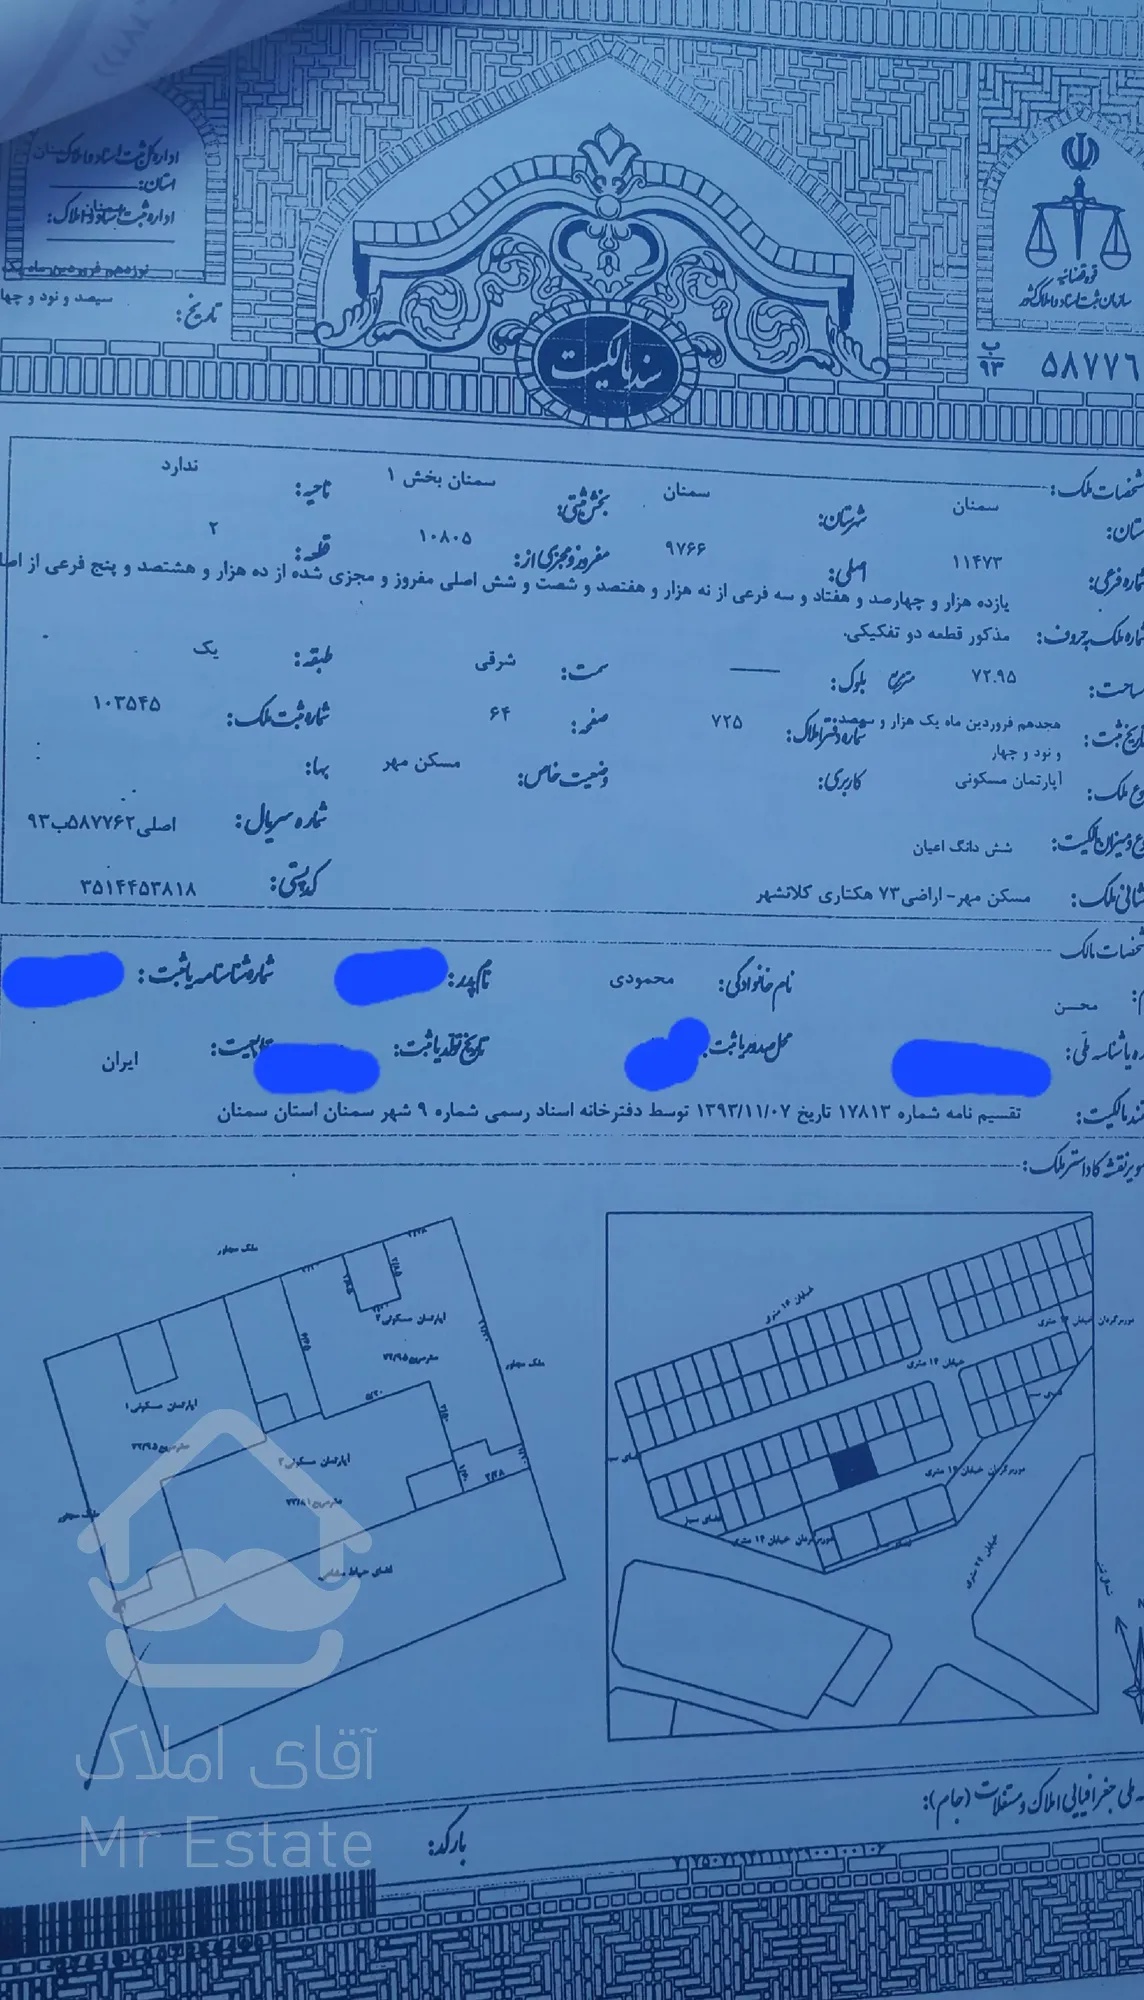 اداره کل ثبت اسناد و املاک
استان: سمنان
اداره ثبت اسناد و املاک: سمنان
نوزدهم فروردین ماه یک
سیصد و نود و چها
تاریخ:
قوه قضائیه
سازمان ثبت اسناد و املاک کشور
ب ۹۳ ۵۸۷۷۶
سند مالکیت
شخصات ملک:
ستان: سمنان شهرستان: سمنان بخش ثبتی: سمنان بخش ۱ ناحیه: ندارد
شماره فرعی: ۱۱۴۷۳ اصلی: ۹۷۶۶ مفروز و مجزی از: ۱۰۸۰۵ قطعه: ۲
شماره ملک به حروف: یازده هزار و چهارصد و هفتاد و سه فرعی از نه هزار و هفتصد و شصت و شش اصلی مفروز و مجزی شده از ده هزار و هشتصد و پنج فرعی از اصل
مذکور قطعه دو تفکیکی.
ساحت: ۷۲.۹۵ مترمربع بلوک: سمت: شرقی طبقه: یک
تاریخ ثبت: هجدهم فروردین ماه یک هزار و سیصد و نود و چهار شماره دفتر املاک: ۷۲۵ صفحه: ۶۴ شماره ثبت ملک: ۱۰۳۵۴۵
وع ملک: آپارتمان مسکونی کاربری: وضعیت خاص: مسکن مهر بها:
ع و میزان مالکیت: شش دانگ اعیان شماره سریال: اصلی۵۸۷۷۶۲ب۹۳
شانی ملک: مسکن مهر- اراضی ۷۳ هکتاری کلانشهر کد پستی: ۳۵۱۴۴۵۳۸۱۸
شخصات مالک
م: محسن نام خانوادگی: محمودی نام پدر: شماره شناسنامه یا ثبت:
ره یا شناسه ملی: محل صدور یا ثبت: تاریخ تولد یا ثبت: تابعیت: ایران
ستند مالکیت: تقسیم نامه شماره ۱۷۸۱۳ تاریخ ۱۳۹۳/۱۱/۰۷ توسط دفترخانه اسناد رسمی شماره ۹ شهر سمنان استان سمنان
صویر نقشه کاداستر ملک:
ملک مجاور
آپارتمان مسکونی ۲
مترمربع ۷۲/۹۵
ملک مجاور
آپارتمان مسکونی ۱
مترمربع ۷۲/۹۵
آپارتمان مسکونی ۳
مترمربع ۷۳/۸۱
ملک مجاور
فضای حیاط مشاعی
۶/۴۵
۵/۲۰
خیابان ۱۶ متری
دوربرگردان خیابان ۱۴ متری
خیابان ۱۴ متری
دوربرگردان خیابان ۱۴ متری
فضای سبز
دوربرگردان خیابان ۱۴ متری
خیابان ۲۴ متری
N
ه ملی جغرافیایی املاک و مستغلات (جام):
بارکد:
آقای املاک
Mr Estate